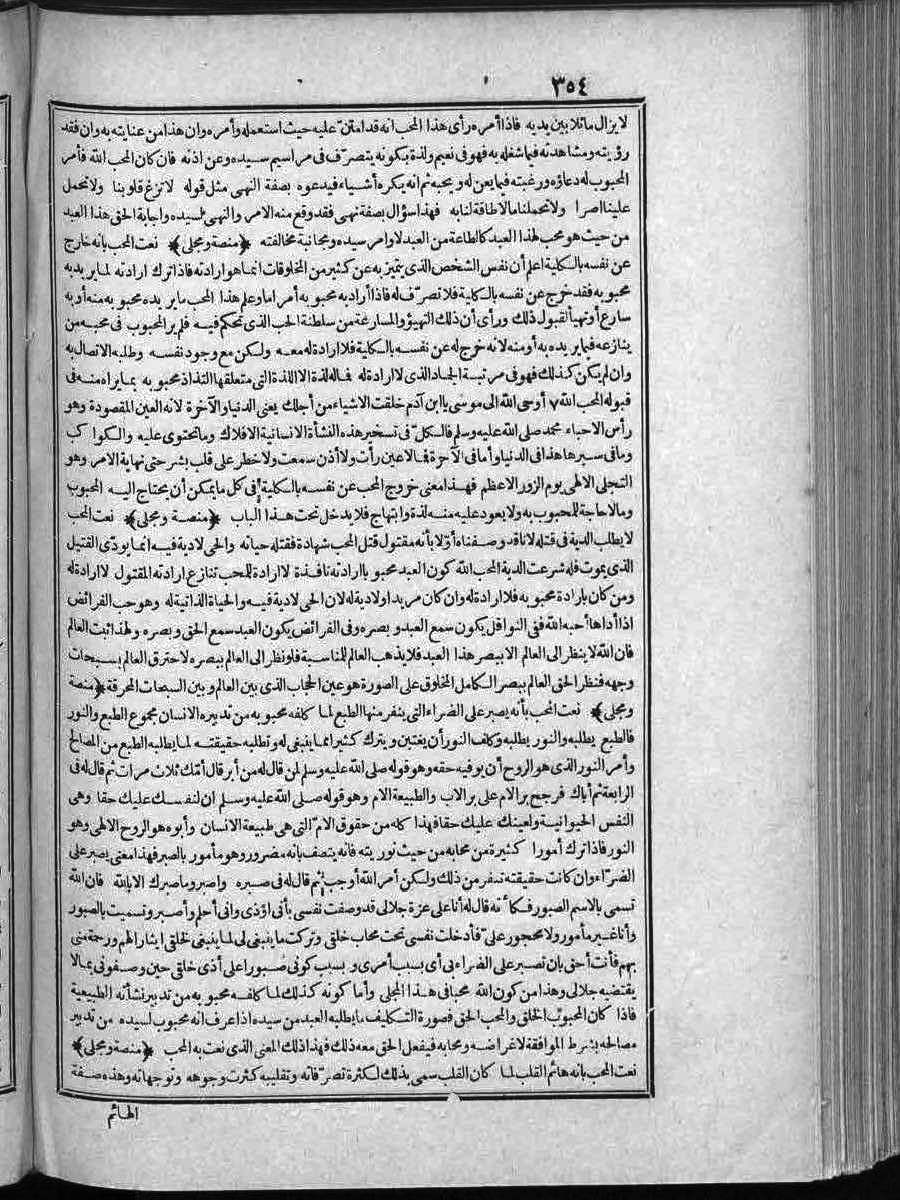 ٣٥٤
لا يزال ماثلا بين يديه فاذا أمره رأى هذا المحب انه قد امتنّ عليه حيث استعمله وأمره وان هذا من عنايته به وان فقد
رؤيته ومشاهدته فيما شغله به فهو فى نعيم ولذة بكونه يتصرّف فى مراسيم سيده وعن اذنه فان كان المحب الله فأمر
المحبوب له دعاؤه ورغبته فيما يعن له ويحبه ثم انه يكره أشياء فيدعوه بصفة النهى مثل قوله لا تزغ قلوبنا ولا تحمل
علينا اصرا ولا تحملنا مالا طاقة لنا به فهذا سؤال بصفة نهى فقد وقع منه الامر والنهى لسيده واجابة الحق هذا العبد
من حيث هو محب لهذا العبد كالطاعة من العبد لاوامر سيده ومجانبة مخالفته ﴿منصة ومجلى﴾ نعت المحب بانه خارج
عن نفسه بالكلية اعلم أن نفس الشخص الذى يتميز به عن كثير من المخلوقات انما هو ارادته فاذا ترك ارادته لما يريد به
محبوبه فقد خرج عن نفسه بالكلية فلا تصرّف له فاذا أراد به محبوبه أمرا ما وعلم هذا المحب ما يريده محبوبه منه أو به
سارع أو تهيأ لقبول ذلك ورأى أن ذلك التهيؤ والمسارعة من سلطنة الحب الذى تحكم فيه فلم ير المحبوب فى محبه من
ينازعه فيما يريده به أو منه لانه خرج له عن نفسه بالكلية فلا ارادة له معه ولكن مع وجود نفسه وطلبه الاتصال به
وان لم يكن كذلك فهو فى مرتبة الجماد الذى لا ارادة له فماله لذة الا اللذة التى متعلقها التذاذ محبوبه بما يراه منه فى
قبوله المحب الله ٧ أوحى الله الى موسى يا ابن آدم خلقت الاشياء من أجلك يعنى الدنيا والآخرة لانه العين المقصودة وهو
رأس الاحباء محمد صلى الله عليه وسلم فالكلّ فى تسخير هذه النشأة الانسانية الافلاك وما تحتوى عليه والكواكب
وما فى سيرها هذا فى الدنيا وأما فى الآخرة فما لا عين رأت ولا أذن سمعت ولا خطر على قلب بشر حتى نهاية الامر وهو
التجلى الالهى يوم الزور الاعظم فهذا معنى خروج المحب عن نفسه بالكلية أى كل ما يمكن أن يحتاج اليه المحبوب
وما لا حاجة للمحبوب به ولا يعود عليه منه لذة وابتهاج فلا يدخل تحت هذا الباب ﴿منصة ومجلى﴾ نعت المحب
لا يطلب الدية فى قتله لانا قد وصفناه أوّلا بأنه مقتول قتل المحب شهادة فقتله حياته والحى لادية فيه انما يودّى القتيل
الذى يموت فله شرعت الدية المحب الله كون العبد محبوبا بارادته نافذة لا ارادة للمحب تنازع ارادته المقتول لا ارادة له
ومن كان بارادة محبوبه فلا ارادة له وان كان مريدا ولادية له لان الحى لادية فيه والحياة الذاتية له وهو حب الفرائض
اذا أداها أحبه الله ففى النوافل يكون سمع العبد وبصره وفى الفرائض يكون العبد سمع الحق وبصره ولهذا ثبت العالم
فان الله لا ينظر الى العالم الا ببصر هذا العبد فلا يذهب العالم للمناسبة فلو نظر الى العالم ببصره لاحترق العالم بسبحات
وجهه فنظر الحق العالم ببصر الكامل المخلوق على الصورة هو عين الحجاب الذى بين العالم وبين السبحات المحرقة ﴿منصة
ومجلى﴾ نعت المحب بأنه يصبر على الضراء التى ينفر منها الطبع لما كلفه محبوبه من تدبيره الانسان مجموع الطبع والنور
فالطبع يطلبه والنور يطلبه وكلف النور أن يغتبن ويترك كثيرا مما ينبغى له وتطلبه حقيقته لما يطلبه الطبع من المصالح
وأمر النور الذى هو الروح أن يوفيه حقه وهو قوله صلى الله عليه وسلم لمن قال له من أبر قال أمّك ثلاث مرات ثم قال له فى
الرابعة ثم أباك فرجح بر الام على بر الاب والطبيعة الام وهو قوله صلى الله عليه وسلم ان لنفسك عليك حقا وهى
النفس الحيوانية ولعينك عليك حقا فهذا كله من حقوق الامّ التى هى طبيعة الانسان وأبوه هو الروح الالهى وهو
النور فاذا ترك أمورا كثيرة من محابه من حيث نوريته فانه يتصف بانه مضرور وهو مأمور بالصبر فهذا معنى يصبر على
الضرّاء وان كانت حقيقته تنفر من ذلك ولكن أمر الله أوجب ثم قال له فى صبره واصبر وما صبرك الا بالله فان الله
تسمى بالاسم الصبور فكأنه قال له أنا على عزة جلالى قد وصفت نفسى بأنى أوذى وانى أحلم وأصبر وتسميت بالصبور
وأنا غير مأمور ولا محجور علىّ فأدخلت نفسى تحت محاب خلقى وتركت ما ينبغى لى لما ينبغى لخلقى ايثارا لهم ورحمة منى
بهم فأنت أحق بان تصبر على الضراء بى أى بسبب أمرى وبسبب كونى صبورا على أذى خلقى حين وصفونى بما لا
يقتضيه جلالى وهذا من كون الله محبا فى هذا المجلى وأما كونه كذلك لما كلفه محبوبه من تدبير نشأته الطبيعية
فاذا كان المحبوب الخلق والمحب الحق فصورة التكليف ما يطلبه العبد من سيده اذا عرف انه محبوب لسيده من تدبير
مصالحه بشرط الموافقة لاغراضه ومحابه فيفعل الحق معه ذلك فهذا ذلك المعنى الذى نعت به المحب ﴿منصة ومجلى﴾
نعت المحب بانه هائم القلب لما كان القلب سمى بذلك لكثرة تصرّفاته وتقليبه كثرت وجوهه وتوجهاته وهذه صفة
الهائم